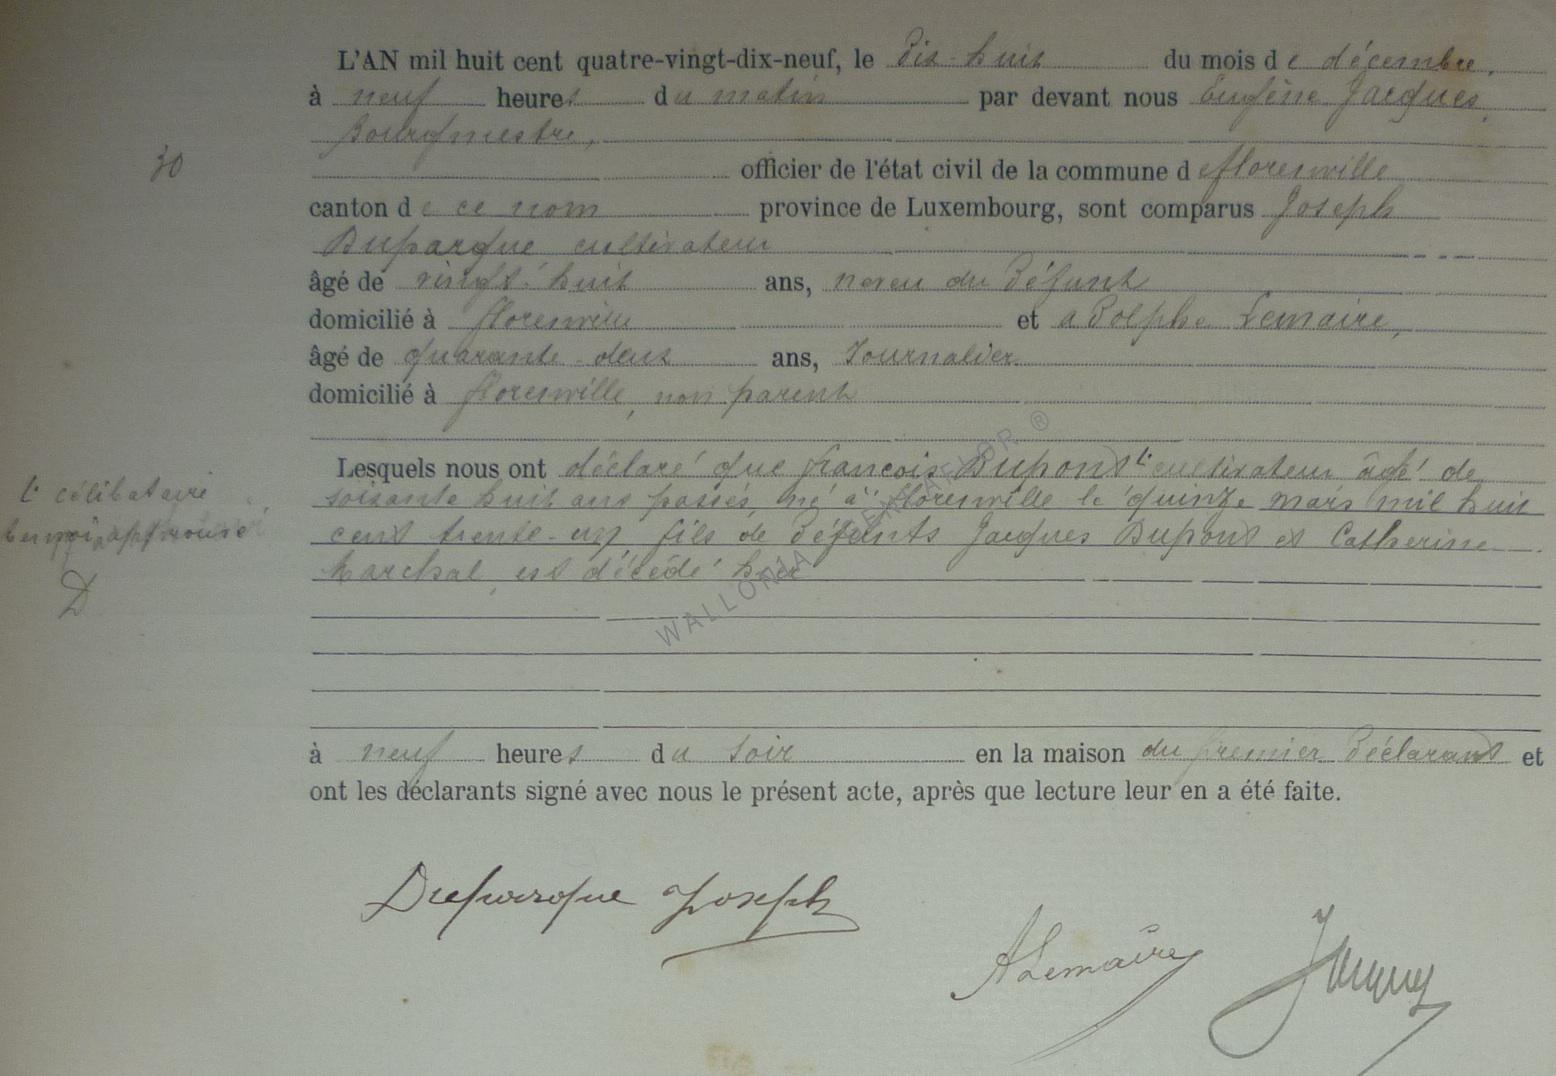 L'AN mil huit cent quatre-vingt-dix-neuf, le Dix-huit du mois de décembre,
à neuf heures du matin par devant nous Eugène Jacques,
Bourgmestre,
30
officier de l'état civil de la commune de florenville
canton de ce nom province de Luxembourg, sont comparus Joseph
Duparque cultivateur
âgé de vingt-huit ans, neveu du Défunt
domicilié à florenville et adolphe Lemaire,
âgé de quarante-deux ans, Journalier
domicilié à florenville, non parent
Lesquels nous ont déclaré que françois Dupont cultivateur âgé de
célibataire
soixante huit ans passés, né à florenville le quinze mars mil huit
renvoi approuvé
cent trente-un fils de Défunts Jacques Dupont et Catherine
D
Marchal, est décédé hier
WALLONIA FAMAFLOR ®
à neuf heures du soir en la maison du premier Déclarant et
ont les déclarants signé avec nous le présent acte, après que lecture leur en a été faite.
Duparque Joseph
ALemaire Jacques